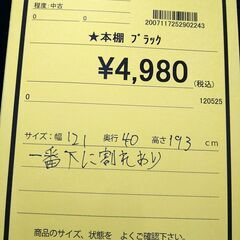 程度:中古
0
0
2007117252902243
★本棚 ブラック
¥4,980
(税込)
0
120525
サイズ:幅 121 奥行 40 高さ 193 cm
一番下に割れあり
商品のサイズ、状態を よくご確認下さい。